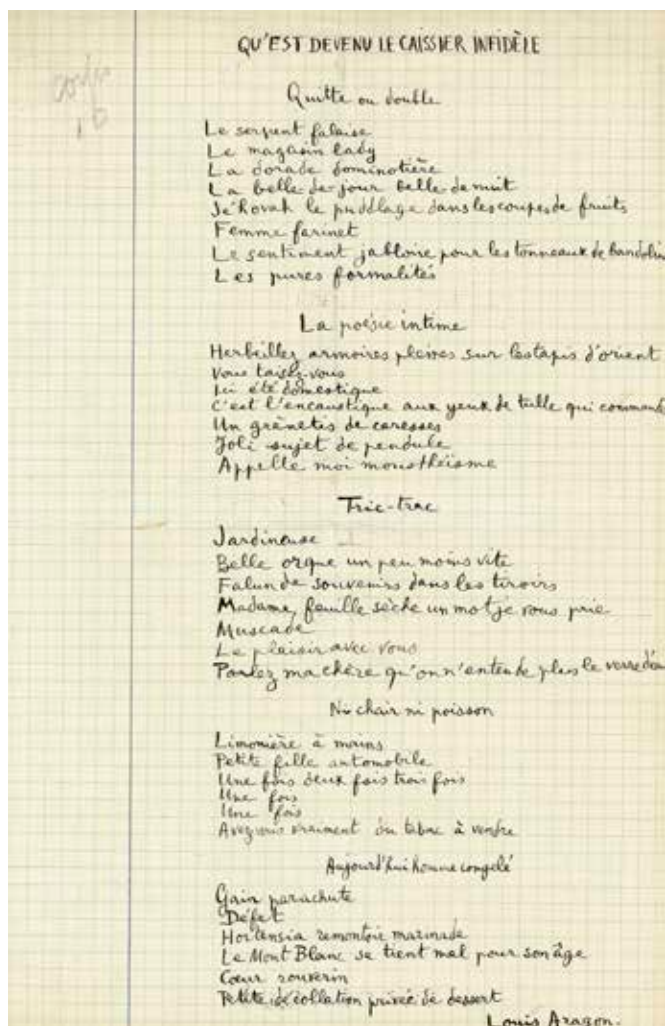 QU'EST DEVENU LE CAISSIER INFIDÈLE
Quitte ou double
Le serpent falaise
Le magasin lady
La dorade dominotière
La belle-de-jour belle-de-nuit
Jéhovah le puddlage dans les coupes de fruits
Femme farinet
Le sentiment jabloire pour les tonneaux de bandolin
Les pures formalités
La poésie intime
Herbeillez armoires pleines sur les tapis d'orient
Vous taisez-vous
Ici été domestique
C'est l'encaustique aux yeux de tulle qui command
Un grènetis de caresses
Joli sujet de pendule
Appelle moi monothéisme
Tric-trac
Jardineuse
Belle orgue un peu moins vite
Falun de souvenirs dans les tiroirs
Madame, feuille sèche un mot je vous prie
Muscade
Le plaisir avec vous
Parlez ma chère qu'on n'entende plus le verre d'eau
Ni chair ni poisson
Limonière à mains
Petite fille automobile
Une fois deux fois trois fois
Une fois
Une fois
Avez-vous vraiment du tabac à vendre
Aujourd'hui homme congelé
Gain parachute
Défet
Hortensia remontoir marinade
Le Mont Blanc se tient mal pour son âge
Cœur souverin
Petite collation privée de dessert
Louis Aragon.